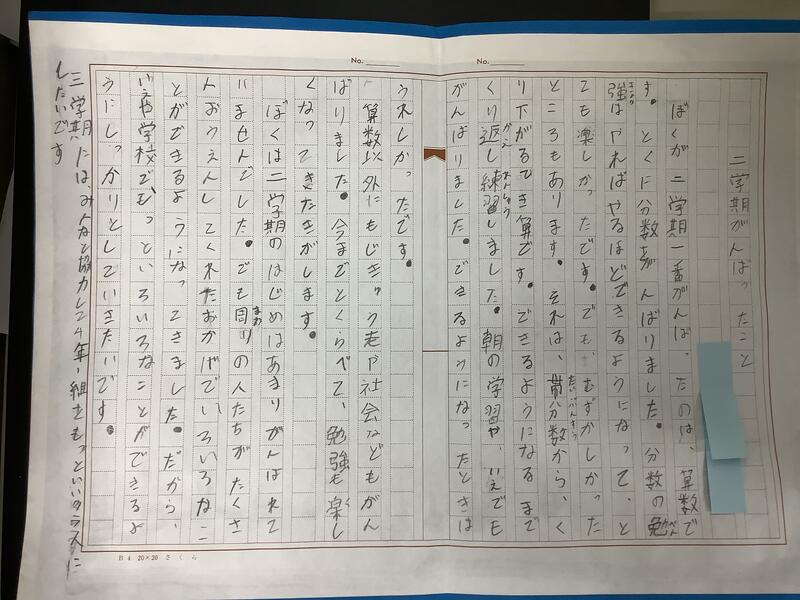 No.
No.
二学期がんばったこと
ぼくが二学期一番がんばったのは、算数で
す。とくに分数をがんばりました。分数の勉
強はやればやるほどできるようになって、と
ても楽しかったです。でも、むずかしかった
ところもあります。それは、帯分数から、く
り下がるひき算です。できるようになるまで
くり返し練習しました。朝の学習や、いえでも
がんばりました。できるようになったときは
うれしかったです。
算数以外にもじきゅう走や社会などもがん
ばりました。今まででとくらべて、勉強も楽し
くなってきたきがします。
ぼくは二学期のはじめはあまりがんばれて
いませんでした。でも周りの人たちがたくさ
んおうえんしてくれたおかげでいろいろなこ
とができるようになってきました。だから、
いえや学校でもっといろいろなことができるよ
うにしっかりとしていきたいです。
三学期には、みんなと協力して4年1組をもっといいクラスに
したいです
B4 20×20 さくら